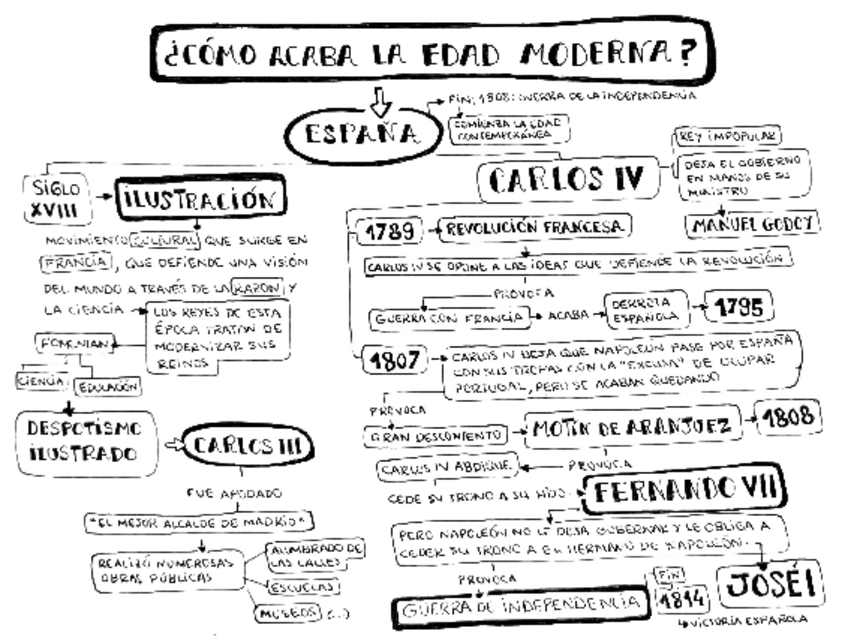 ¿CÓMO ACABA LA EDAD MODERNA?
ESPAÑA
FIN: 1808: GUERRA DE LA INDEPENDENCIA
COMIENZA LA EDAD
CONTEMPORÁNEA
SIGLO
XVIII
ILUSTRACIÓN
MOVIMIENTO CULTURAL QUE SURGE EN
FRANCIA, QUE DEFIENDE UNA VISIÓN
DEL MUNDO A TRAVÉS DE LA RAZÓN Y
LA CIENCIA
LOS REYES DE ESTA
ÉPOCA TRATAN DE
MODERNIZAR SUS
REINOS
FOMENTAN
CIENCIA
EDUCACIÓN
DESPOTISMO
ILUSTRADO
CARLOS III
FUE APODADO
"EL MEJOR ALCALDE DE MADRID"
REALIZÓ NUMEROSAS
OBRAS PÚBLICAS
ALUMBRADO DE
LAS CALLES
ESCUELAS
MUSEOS (...)
CARLOS IV
REY IMPOPULAR
DEJA EL GOBIERNO
EN MANOS DE SU
MINISTRO
MANUEL GODOY
1789
REVOLUCIÓN FRANCESA
CARLOS IV SE OPONE A LAS IDEAS QUE DEFIENDE LA REVOLUCIÓN
PROVOCA
GUERRA CON FRANCIA
ACABA
DERROTA
ESPAÑOLA
1795
1807
CARLOS IV DEJA QUE NAPOLEÓN PASE POR ESPAÑA
CON SUS TROPAS CON LA "EXCUSA" DE OCUPAR
PORTUGAL, PERO SE ACABAN QUEDANDO
PROVOCA
GRAN DESCONTENTO
MOTÍN DE ARANJUEZ
1808
PROVOCA
CARLOS IV ABDIQUE
CEDE SU TRONO A SU HIJO
FERNANDO VII
PERO NAPOLEÓN NO LE DEJA GOBERNAR Y LE OBLIGA A
CEDER SU TRONO A EL HERMANO DE NAPOLEÓN.
JOSÉ I
PROVOCA
GUERRA DE INDEPENDENCIA
FIN
1814
VICTORIA ESPAÑOLA